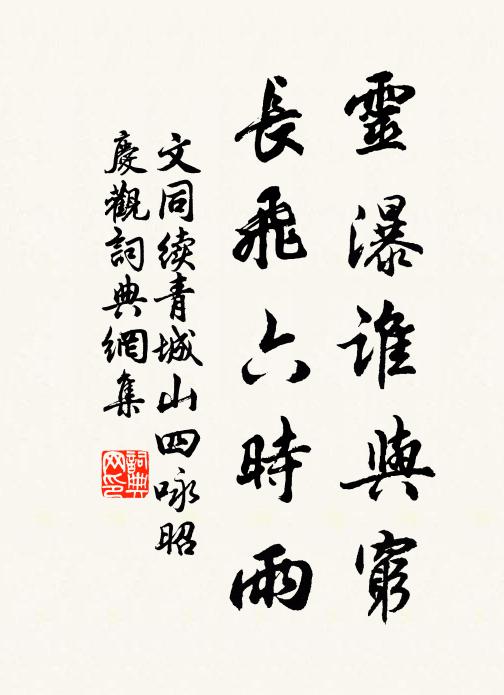 靈瀑誰與窮
長飛六時雨
文同续青城山四咏昭
慶觀詞典網集
詞典网印